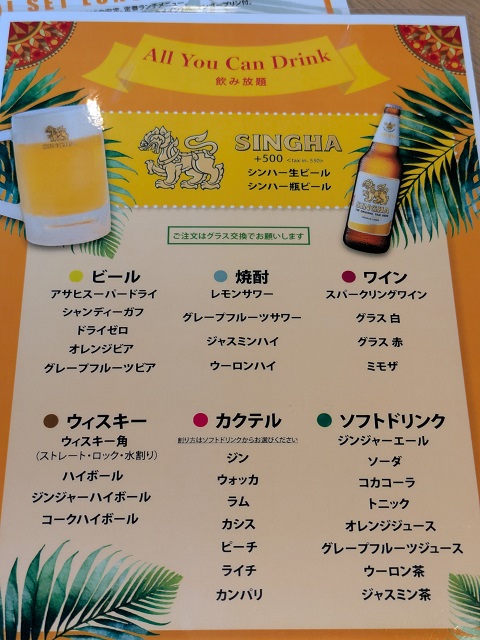 All You Can Drink
飲み放題
SINGHA
+500 <tax in. 550>
シンハー生ビール
シンハー瓶ビール
SINGHA
ご注文はグラス交換でお願いします
ビール
アサヒスーパードライ
シャンディーガフ
ドライゼロ
オレンジビア
グレープフルーツビア
焼酎
レモンサワー
グレープフルーツサワー
ジャスミンハイ
ウーロンハイ
ワイン
スパークリングワイン
グラス 白
グラス 赤
ミモザ
ウィスキー
ウィスキー角
(ストレート・ロック・水割り)
ハイボール
ジンジャーハイボール
コークハイボール
カクテル
割り方はソフトドリンクからお選びください
ジン
ウォッカ
ラム
カシス
ピーチ
ライチ
カンパリ
ソフトドリンク
ジンジャーエール
ソーダ
コカコーラ
トニック
オレンジジュース
グレープフルーツジュース
ウーロン茶
ジャスミン茶